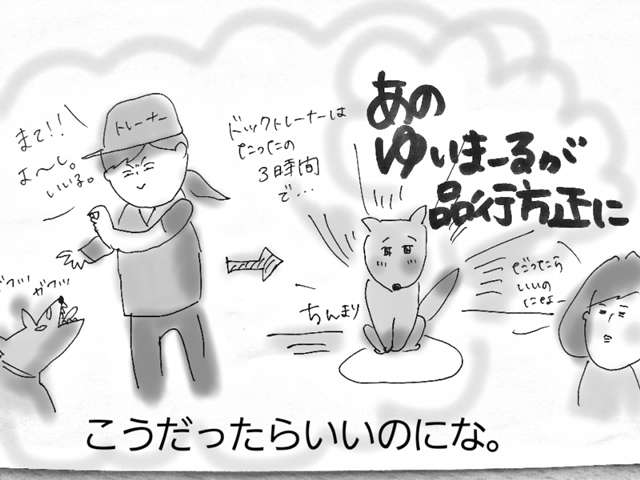 まて!!
よ〜し。
いいよ。
トレーナー
ドックトレーナーは
たったの
3時間
で…
あの
ゆいまーるが
品行方正に
ガウッ ガウッ
ちんまり
だったら
いいの
こうだったらいいのにな。